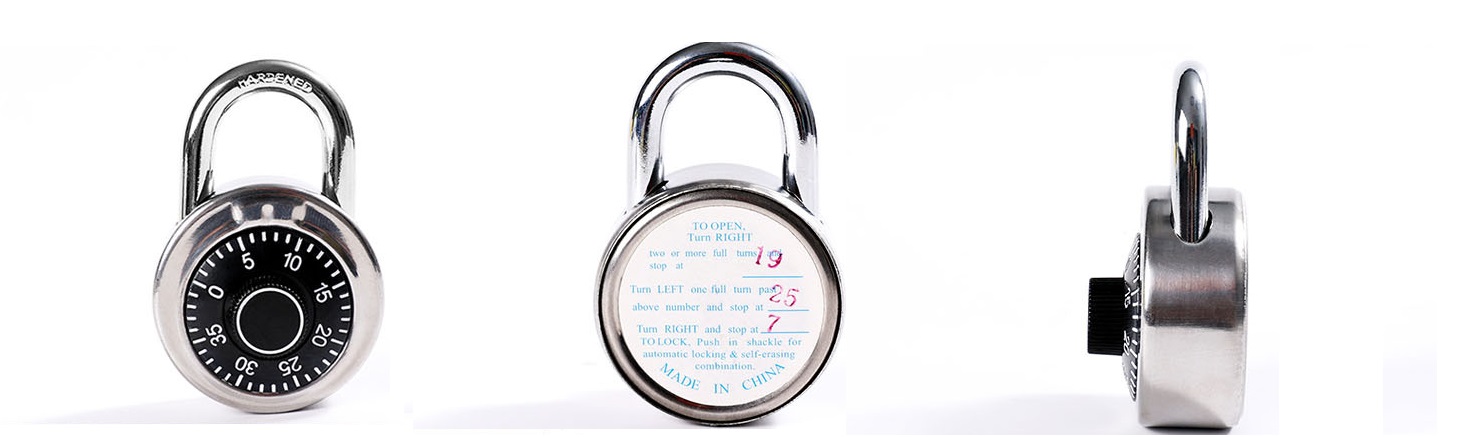 HARDENED
0 5 10 15 20 25 30 35
TO OPEN,
Turn RIGHT
two or more full turns and
stop at 19
Turn LEFT one full turn past
above number and stop at 25
Turn RIGHT and stop at 7
TO LOCK, Push in shackle for
automatic locking & self-erasing
combination.
MADE IN CHINA
15
20